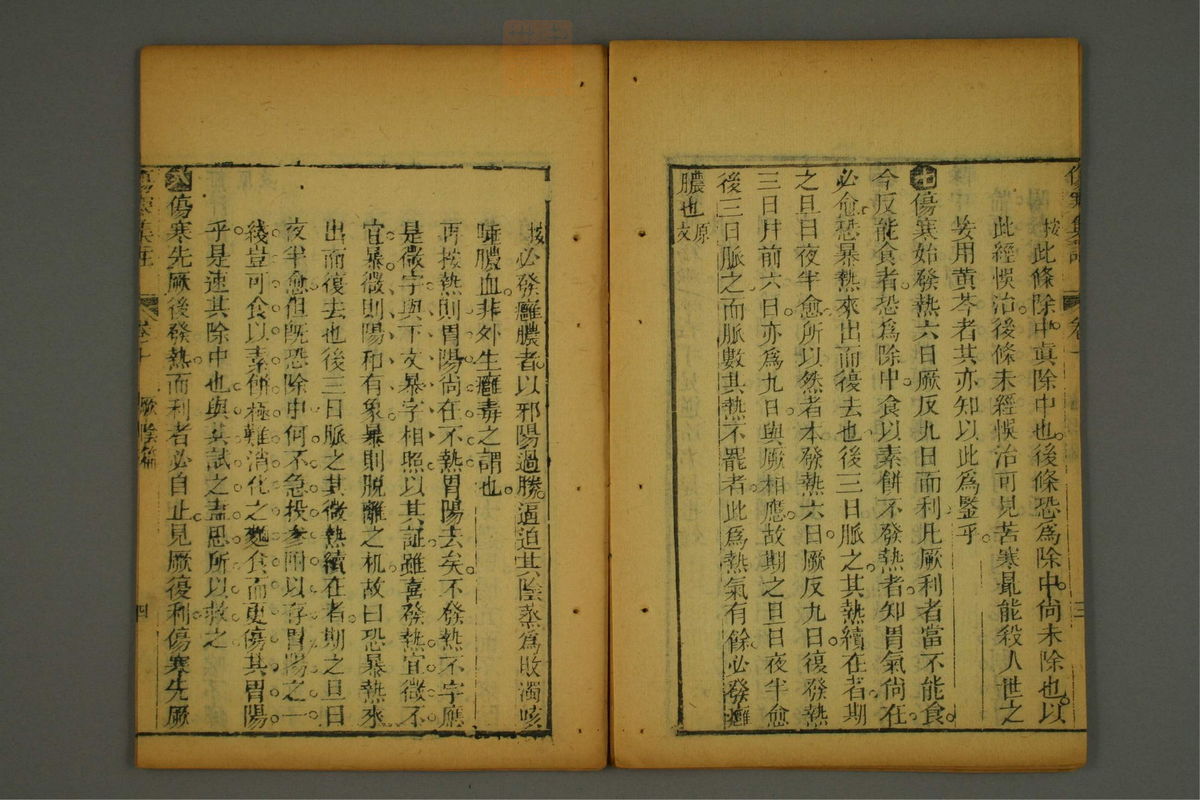 傷寒集註
卷十
三
按此條除中真除中也後條恐為除中尚未除也以
此經悞治後條未經悞治可見苦寒最能殺人世之
妄用黄芩者其亦知以此為鑒乎
傷寒始發熱六日厥反九日而利凡厥利者當不能食
今反能食者恐為除中食以素餅不發熱者知胃氣尚在
必愈恐暴熱來出而復去也後三日脈之其熱續在者期
之旦日夜半愈所以然者本發熱六日厥反九日復發熱
三日并前六日亦為九日與厥相應故期之旦日夜半愈
後三日脈之而脈數其熱不罷者此為熱氣有餘必發癰
膿也原文
按必發癰膿者以邪陽過勝逼迫其陰蒸為敗濁咳
唾膿血非外生癰毒之謂也
再按熱則胃陽尚在不熱胃陽去矣不發熱不字應
是微字與下文暴字相照以其証雖喜發熱宜微不
宜暴微則陽和有象暴則脫離之机故曰恐暴熱來
出而復去也後三日脈之其微熱續在者期之旦日
夜半愈但既恐除中何不急投參附以存胃陽之一
綫豈可食以素餅極難消化之麵食而更傷其胃陽
乎是速其除中也與其試之盍思所以救之
傷寒先厥後發熱而利者必自止見厥復利傷寒先厥
傷寒集註
卷十
厥陰篇
四